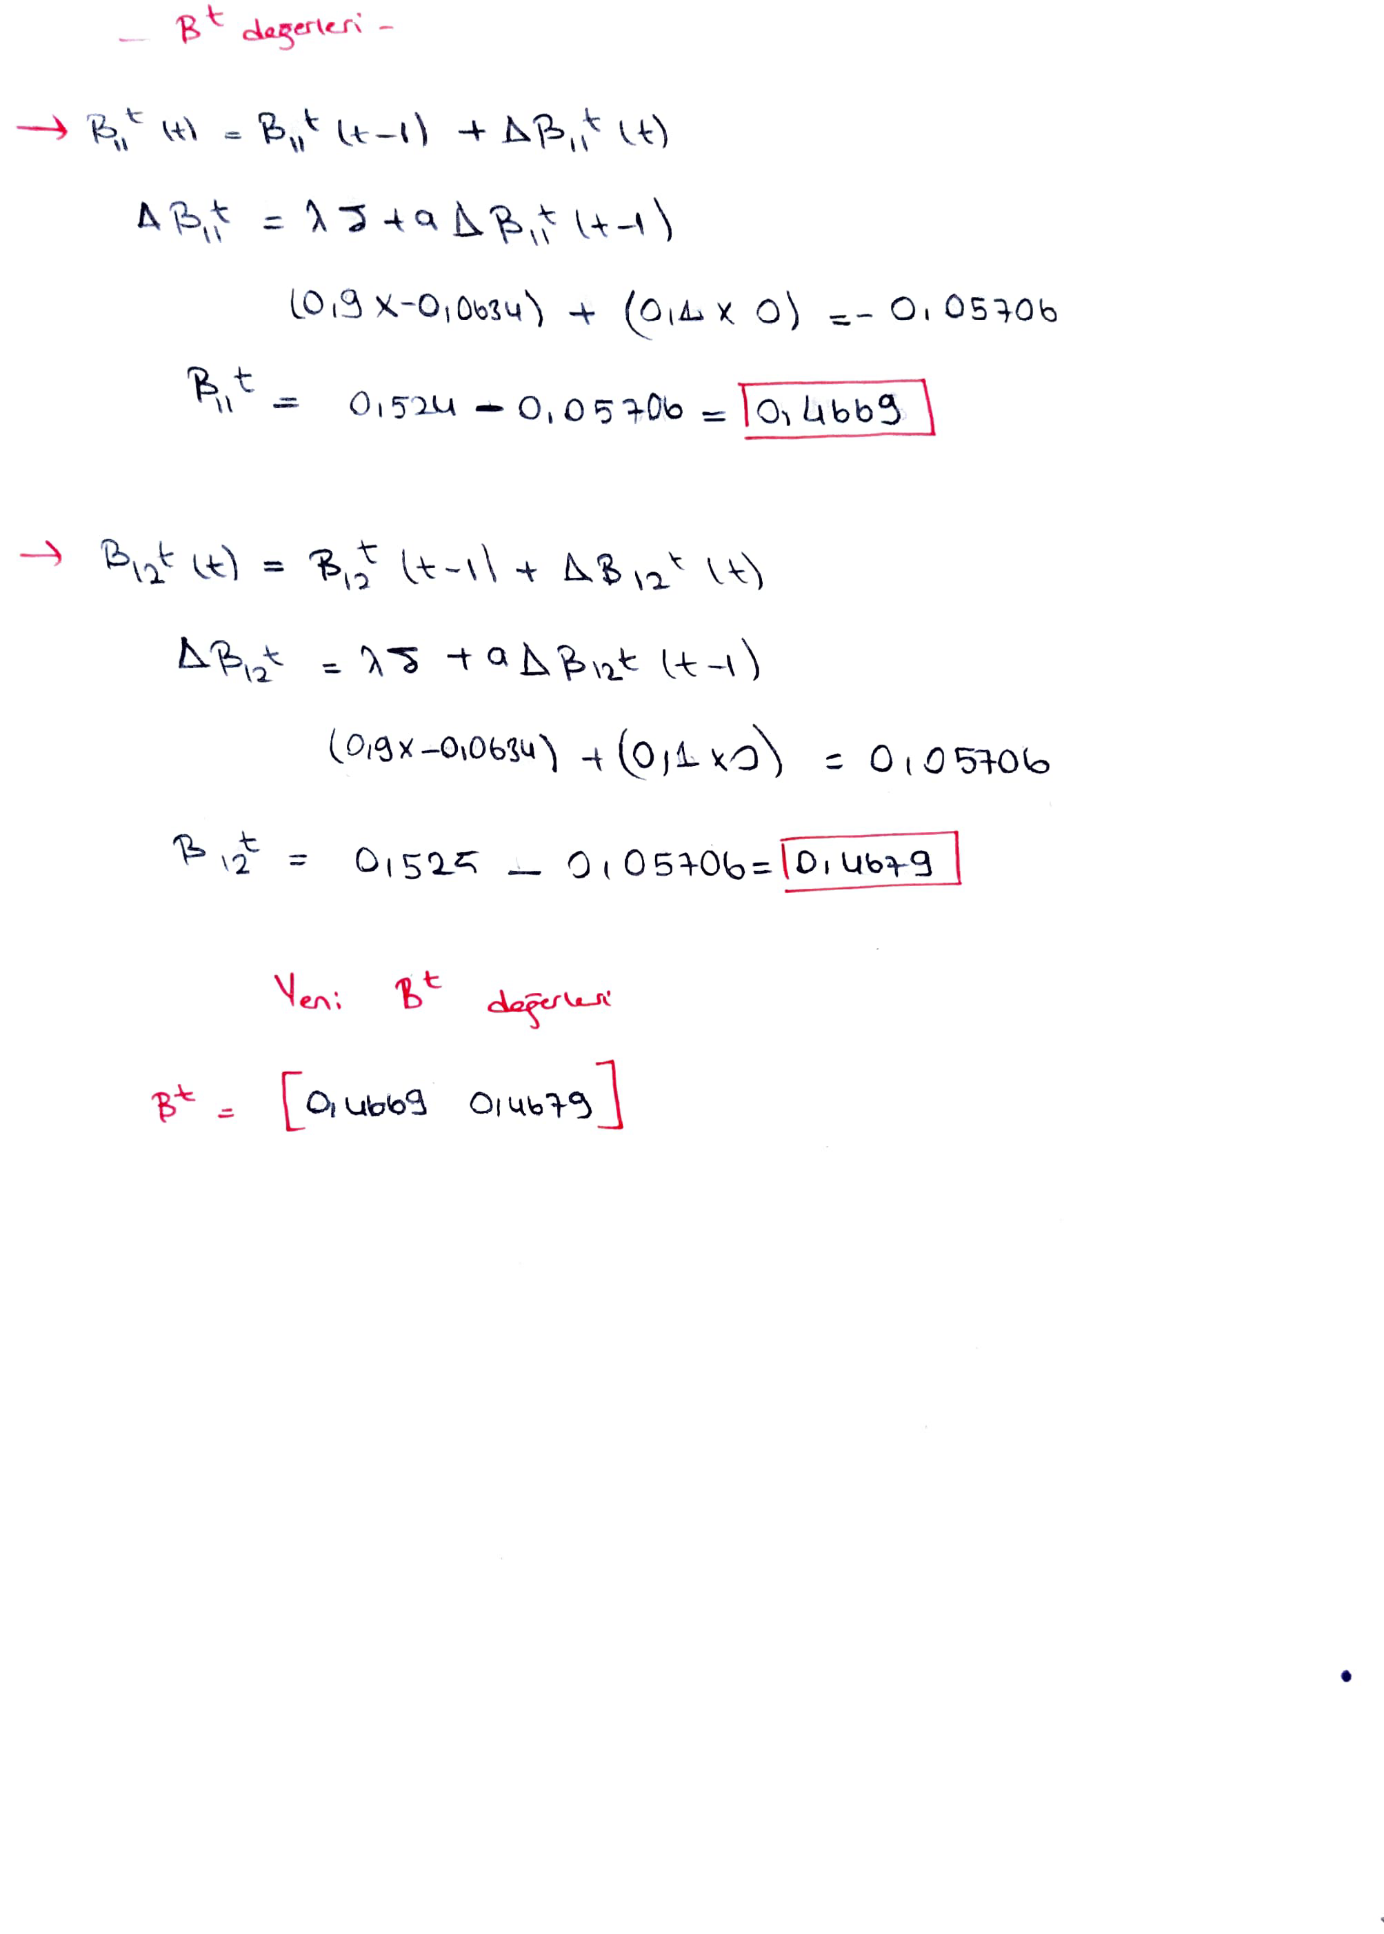 - Bᵗ değerleri -
→ B₁₁ᵗ (t) = B₁₁ᵗ (t-1) + ΔB₁₁ᵗ (t)
ΔB₁₁ᵗ = λδ + a ΔB₁₁ᵗ (t-1)
(0,9 x -0,0634) + (0,1 x 0) = - 0,05706
B₁₁ᵗ = 0,524 - 0,05706 = 0,4669
→ B₁₂ᵗ (t) = B₁₂ᵗ (t-1) + ΔB₁₂ᵗ (t)
ΔB₁₂ᵗ = λδ + a ΔB₁₂ᵗ (t-1)
(0,9 x -0,0634) + (0,1 x 0) = 0,05706
B₁₂ᵗ = 0,525 - 0,05706 = 0,4679
Yeni Bᵗ değerleri
Bᵗ = [0,4669 0,4679]